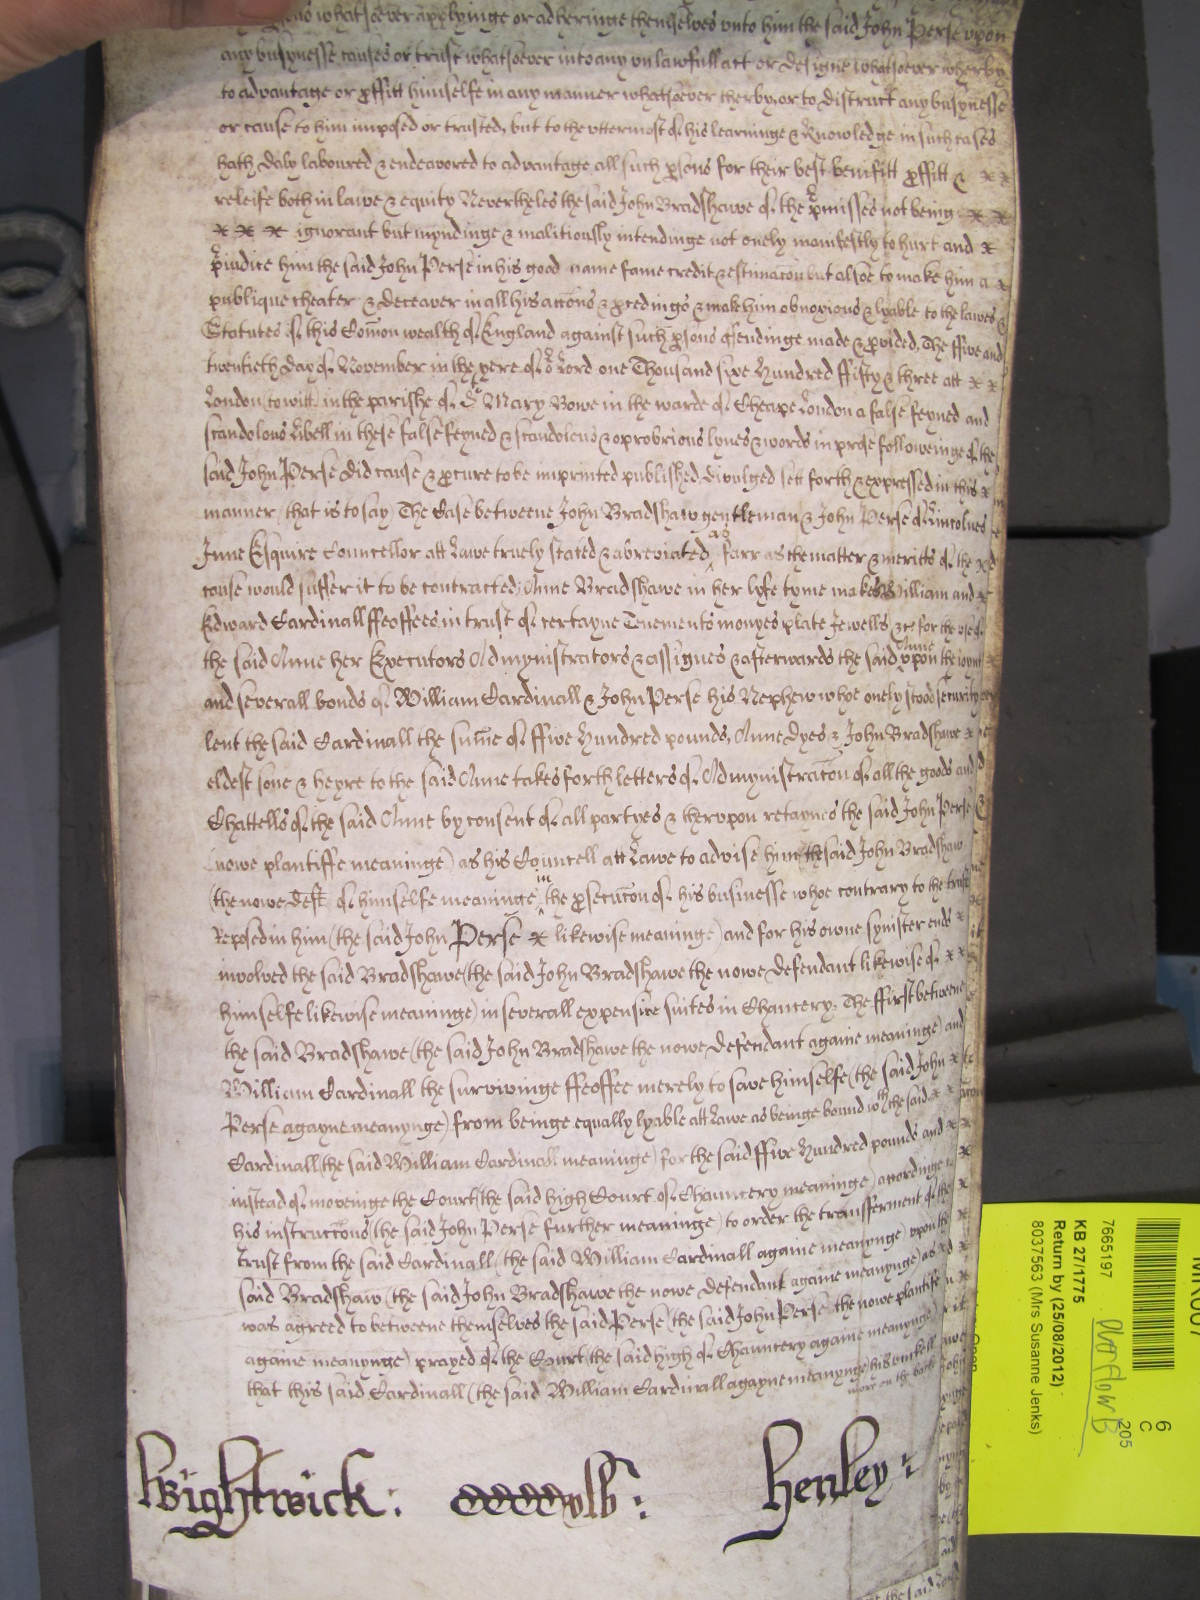 whatsoever applyinge or adheringe themselves unto him the said John Perse upon
any busynesse causes or trust whatsoever into any unlawfull act or designe whatsoever wherby
to advantage or proffitt himselfe in any manner whatsoever therby, or to distract any busynesse
or cause to him imposed or trusted, but to the uttermost of his learninge & knowledge in such cases
hath daly laboured & endeavored to advantage all such psons for their best benifitt proffitt &
releife both in lawe & equity Nevertheles the said John Bradshawe of the pmisses not being
ignorant but myndinge & malitiously intendinge not onely manifestly to hurt and
piudice him the said John Perse in his good name fame credit & estimacon but alsoe to make him a
publique cheater & deceaver in all his accons & pcedings & make him obnoxious & lyable to the lawes &
Statutes of this Comon wealth of England against such psons offendinge made & pvided, The ffive and
twentieth day of November in the yere of or Lord one Thousand sixe hundred ffifty & three att
London (to witt) in the parishe of St Mary Bowe in the warde of Cheape London a false feyned and
scandolous libell in these false feyned & scandolous & oprobrious lynes & words in prose followeinge of the
said John Perse did cause & pcure to be imprinted published, divulged sett forth & expressed in this
manner, that is to say, The Case betweene John Bradshaw gentleman & John Perse of Lincolnes
Inne Esquire Councellor att Lawe truely stated & abreviated as farr as the matter & meritts of the
cause would suffer it to be contracted; Anne Bradshawe in her lyfe tyme makes William and
Edward Cardinall ffeoffees in trust of certayne Tenements monyes plate Jewells &c for the use of
the said Anne her Executors Administrators & assignes & afterwards the said Anne upon the ioynt
and severall bonds of William Cardinall & John Perse his Nephew whoe onely stood security
lent the said Cardinall the sume of ffive hundred pounds, Anne dyes & John Bradshawe
eldest sone & heyre to the said Anne takes forth letters of Administracon of all the goods and
Chattells of the said Anne by consent of all partyes & therupon retaynes the said John Perse
(nowe plantiffe meaninge) as his Councell att Lawe to advise him the said John Bradshaw
(the nowe deft of himselfe meaninge) in the psecucon of his businesse whoe contrary to the trust
Reposed in him (the said John Perse likewise meaninge) and for his owne synister ends
involved the said Bradshawe (the said John Bradshawe the nowe defendant likewise of
himselfe likewise meaninge) in severall expensive suites in Chancery. The ffirst betweene
the said Bradshawe (the said John Bradshawe the nowe defendant againe meaninge) and
William Cardinall the survivinge ffeoffee merely to save himselfe (the said John
Perse agayne meanynge) from beinge equally lyable att Lawe as beinge bound wth the said
Cardinall (the said William Cardinall meaninge) for the said ffive hundred pounds and
instead of moveinge the Court (the said high Court of Chauncery meaninge) accordinge
his instruccons (the said John Perse further meaninge) to order the transferment of the
trust from the said Cardinall (the said William Cardinall againe meanynge) upon the
said Bradshaw (the said John Bradshawe the nowe defendant againe meanynge) as
was agreed to betweene themselves the said Perse (the said John Perse the nowe plantife
againe meanynge) prayed of the Court (the said high of Chauncery againe meanynge)
that this said Cardinall (the said William Cardinall agayne meanynge) his unckell
more on the back
Wightwick:
Henley:
7665197
KB 27/1775
Return by (25/08/2012)
8037563 (Mrs Susanne Jenks)
6
C
205